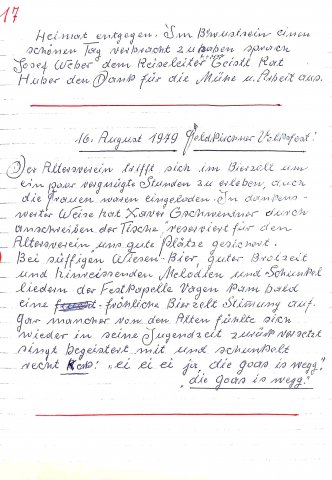 17
Heimat entgegen. Im Bewustsein einen
schönen Tag verbracht zu haben sprach
Josef Weber dem Reiseleiter Geistl. Rat
Huber den Dank für die Mühe u. Arbeit aus.
16. August 1979 Feldkirchner Volksfest!
Der Altersverein trifft sich im Bierzelt um
ein paar vergnügte Stunden zu erleben, auch
die Frauen waren eingeloden. In dankens-
werter Weise hat Xaver Gschwendner durch
anschreiben der Tische "reserviert für dem
Altersverein uns gute Plätze gesichert.
Bei süffigen Wiesen-Bier guter Brotzeit
und hinreissenden Melodien und Schunkel
liedern der Festkapelle Vagen kam bald
eine fröhliche Bierzelt Stimung auf.
Gar mancher von den Alten fühlte sich
wieder in seine Jugendzeit zurück versetzt
singt begeistert mit und schunkelt
recht "ei ei ei ja, die goas is wegg"
"die goas is wegg."